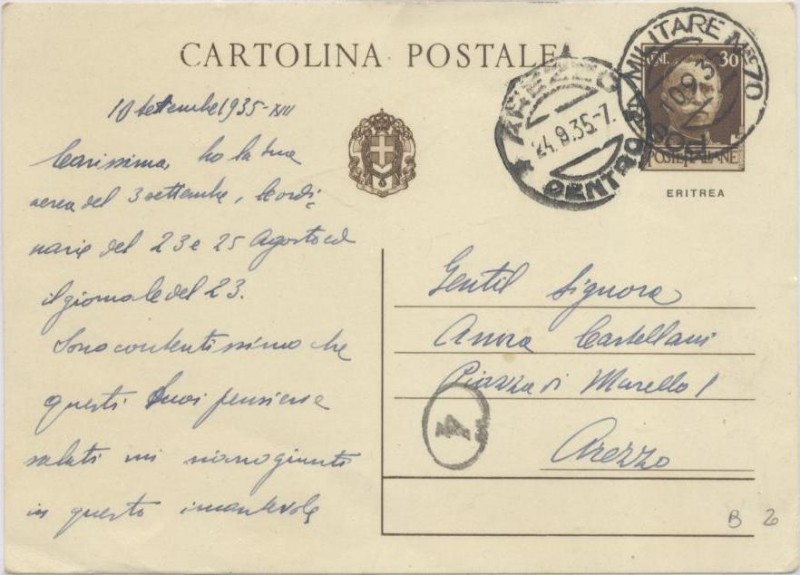 CARTOLINA POSTALE
10 settembre 1935-XIII
Carissima, ho la tua
aerea del 3 settembre, le ordi-
narie del 23 e 25 Agosto ed
il giornale del 23.
Sono contentissimo che
questi tuoi pensieri e
saluti mi siano giunti
in questo
AREZZO
24.9.35-7.
DENTRO
MILITARE Nº 70
POSTA
10.9.35
CENT. 30
POSTE ITALIANE
ERITREA
Gentil Signora
Anna Castellani
Piazza di Murello 1
Arezzo
4
B 2